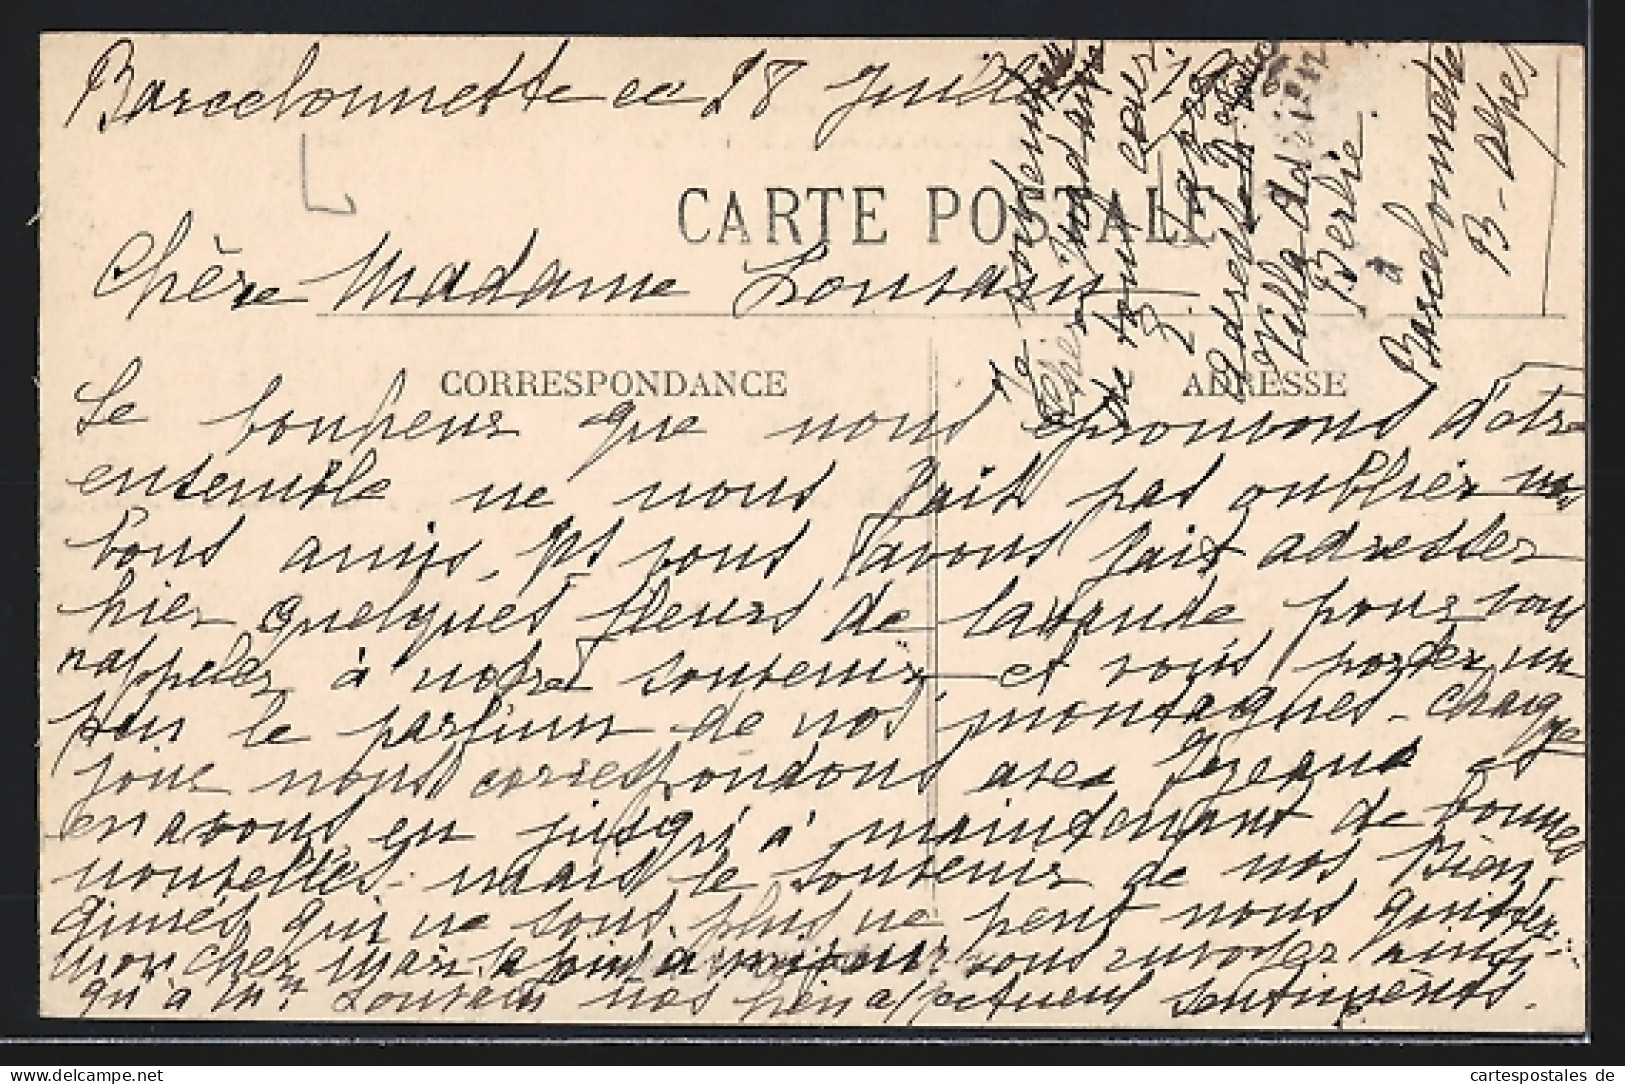 Barcelonnette ce 28 Juil
CARTE POSTALE
Chère Madame
CORRESPONDANCE
ADRESSE
Le bonheur que nous éprouvons d'être
ensemble ne nous fait pas oublier nos
bons amis, et nous avons fait adresser
hier quelques fleurs de lavande pour vous
rappeler à notre souvenir et vous porter un
peu le parfum de nos montagnes. Chaque
jour nous correspondons avec
en avons eu jusqu'à maintenant de bonnes
nouvelles. mais le souvenir de nos bien
aimés qui ne sont plus ne peut nous quitter
mon cher mari à moi pour vous envoyer ainsi
qu'à Mr nos bien affectueux sentiments.
de tout cœur
Adresse
Villa
Berlie
à
Barcelonnette
B-Alpes
cartespostales de